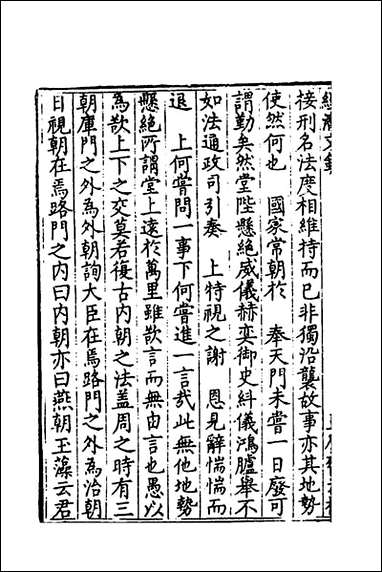 接刑名法度相維持而已非獨沿襲故事亦其地勢
使然何也　國家常朝於　奉天門未嘗一日廢可
謂勤矣然堂陛懸絕威儀赫奕御史糾儀鴻臚舉不
如法通政司引奏　上特視之謝　恩見辭惴惴而
退　上何嘗問一事下何嘗進一言哉此無他地勢
懸絕所謂堂上遠於萬里雖欲言而無由言也愚以
為欲上下之交莫若復古内朝之法蓋周之時有三
朝庫門之外為外朝詢大臣在焉路門之外為治朝
日視朝在焉路門之内曰内朝亦曰燕朝玉藻云君